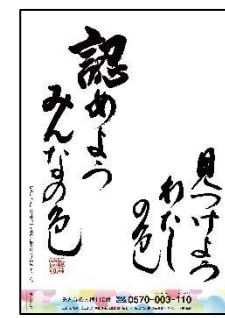 見つけよう
わたし
の色
認めよう
みんなの色
0570-003-110